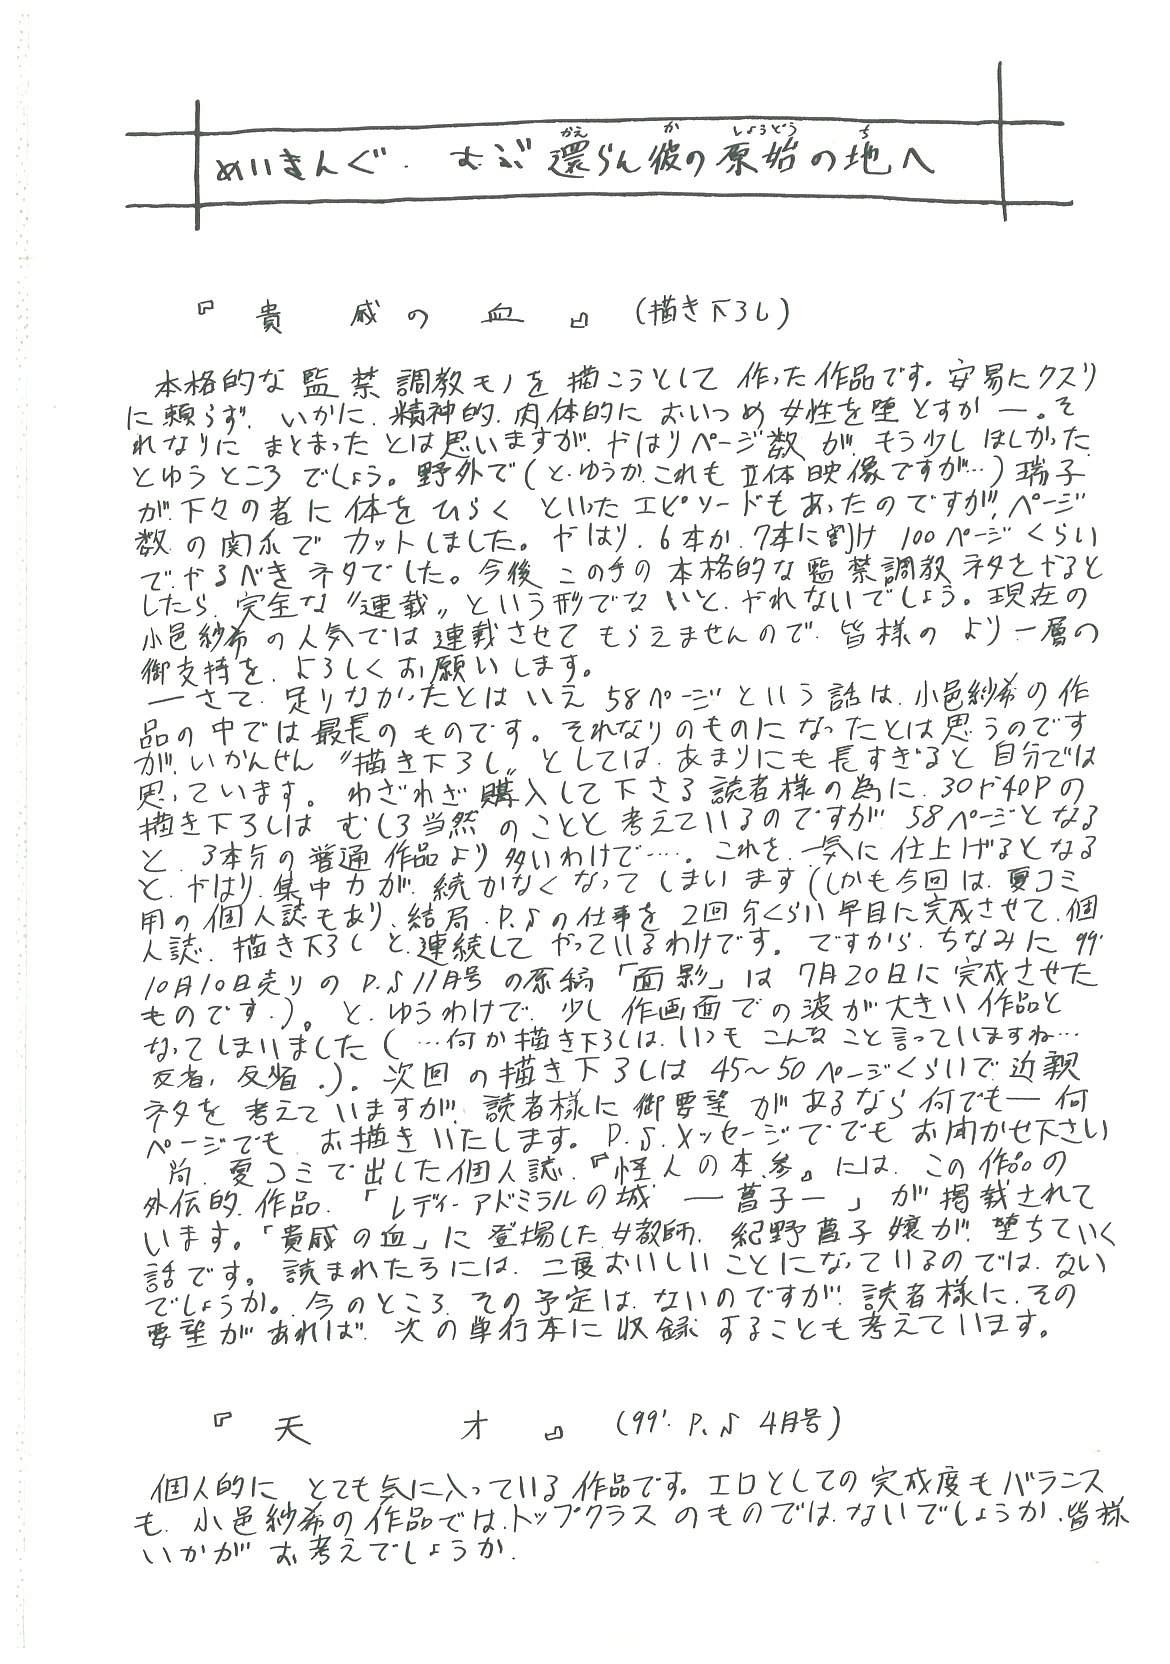 めいきんぐ. おぶ 還らん彼の原始の地へ
かえ か しょうどう ち
『 貴 戚 の 血 』 (描き下ろし)
本格的な監禁調教モノを描こうとして作った作品です。安易にクスリ
に頼らず、いかに、精神的、肉体的においつめ女性を堕とすか―。そ
れなりにまとまったとは思いますが、やはりページ数が、もう少しほしかった
とゆうところでしょう。野外で(と、ゆうか、これも立体映像ですが…)瑞子
が、下々の者に体をひらくといったエピソードもあったのですが、ページ
数の関係でカットしました。やはり、6本か、7本に割け100ページくらい
で、やるべきネタでした。今後この手の本格的な監禁調教ネタをやると
したら、完全な〝連載〟という形でないと、やれないでしょう。現在の
小邑紗希の人気では連載させてもらえませんので、皆様のより一層の
御支持を、よろしくお願いします。
―さて、足りなかったとはいえ58ページという話は、小邑紗希の作
品の中では最長のものです。それなりのものになったとは思うのです
が、いかんせん〝描き下ろし〟としては、あまりにも長すぎると自分では
思っています。わざわざ購入して下さる読者様の為に、30や40Pの
描き下ろしはむしろ当然のことと考えているのですが58ページとなる
と、3本分の普通作品より多いわけで…。これを、一気に仕上げるとなる
と、やはり、集中力が、続かなくなってしまいます(しかも今回は、夏コミ
用の個人誌もあり、結局、P.S の仕事を2回分くらい早目に完成させて、個
人誌、描き下ろしと、連続してやっているわけです。ですから、ちなみに99'
10月10日売りのP.S 11月号の原稿「面影」は7月20日に完成させた
ものです.)。と、ゆうわけで、少し作画面での波が大きい作品と
なってしまいました(…何か描き下ろしは、いつもこんなこと言っていますね…
反省、反省.)。次回の描き下ろしは45～50ページくらいで近親
ネタを考えていますが、読者様に御要望があるなら何でも―何
ページでも、お描きいたします。P.S.メッセージででもお聞かせ下さい
尚、夏コミで出した個人誌、『怪人の本.参』には、この作品の
外伝的作品、「レディーアドミラルの城 ―菖子―」が掲載されて
います。「貴戚の血」に登場した女教師、紀野菖子嬢が、堕ちていく
話です。読まれた方には、二度おいしいことになっているのでは、ない
でしょうか。今のところ、その予定は、ないのですが、読者様に、その
要望があれば、次の単行本に収録することも考えています。
『 天 才 』 (99'. P.S 4月号)
個人的にとても気に入っている作品です。エロとしての完成度もバランス
も、小邑紗希の作品では、トップクラスのものでは、ないでしょうか、皆様
いかがお考えでしょうか.